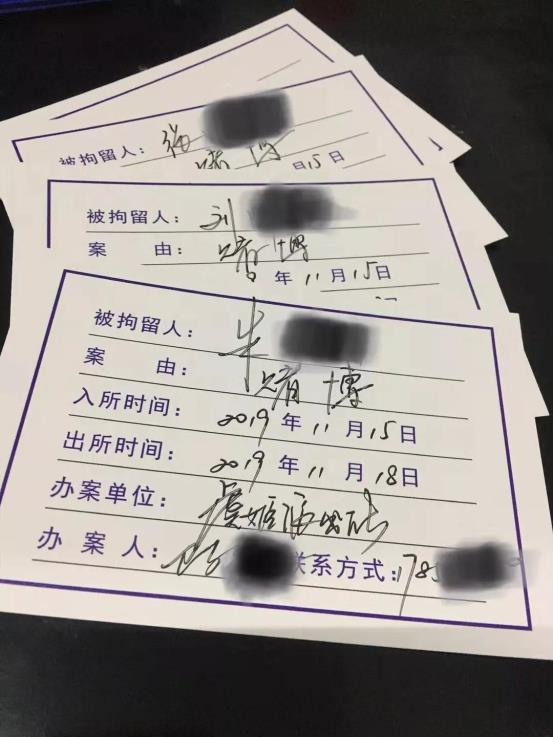 被拘留人：
日15日
被拘留人：刘
案 由：赌博
年11月15日
被拘留人：朱
案 由：赌博
入所时间：2019年11月15日
出所时间：2019年11月18日
办案单位：虞姬派出所
办案人： 联系方式：178